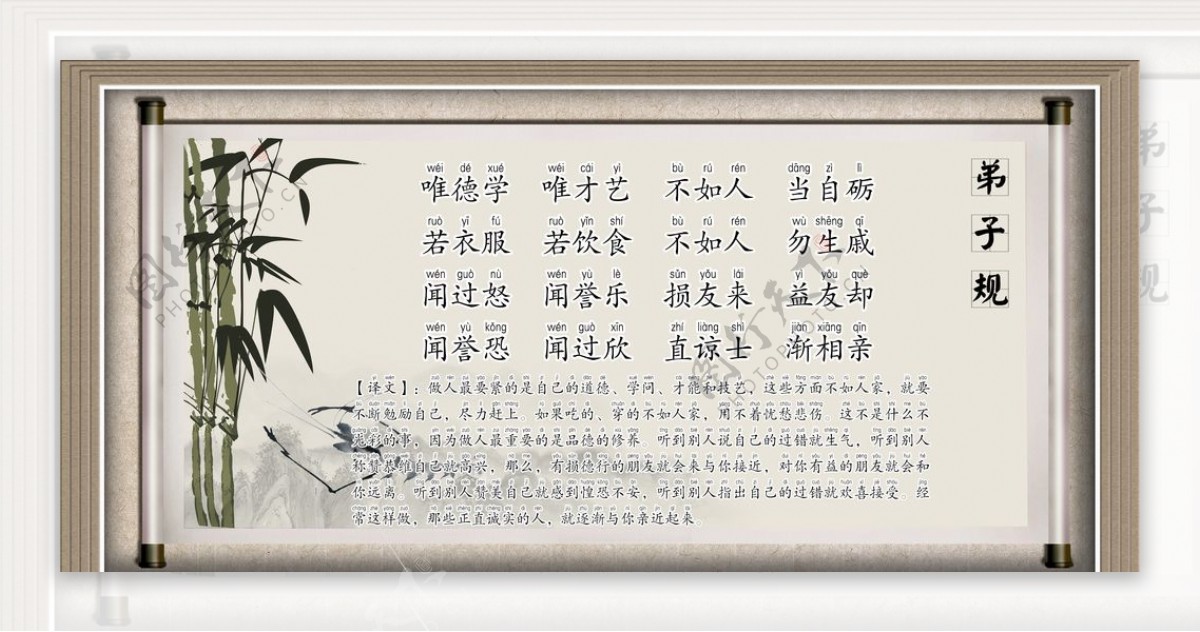 弟子规
wéi dé xué wéi cái yì bù rú rén dāng zì lì
唯德学 唯才艺 不如人 当自砺
ruò yī fú ruò yǐn shí bù rú rén wù shēng qī
若衣服 若饮食 不如人 勿生戚
wén guò nù wén yù lè sǔn yǒu lái yì yǒu què
闻过怒 闻誉乐 损友来 益友却
wén yù kǒng wén guò xīn zhí liàng shì jiàn xiāng qīn
闻誉恐 闻过欣 直谅士 渐相亲
【译文】:做人最要紧的是自己的道德、学问、才能和技艺,这些方面不如人家,就要
不断勉励自己,尽力赶上。如果吃的、穿的不如人家,用不着忧愁悲伤。这不是什么不
光彩的事,因为做人最重要的是品德的修养。听到别人说自己的过错就生气,听到别人
称赞恭维自己就高兴,那么,有损德行的朋友就会来与你接近,对你有益的朋友就会和
你远离。听到别人赞美自己就感到惶恐不安,听到别人指出自己的过错就欢喜接受。经
常这样做,那些正直诚实的人,就逐渐与你亲近起来。